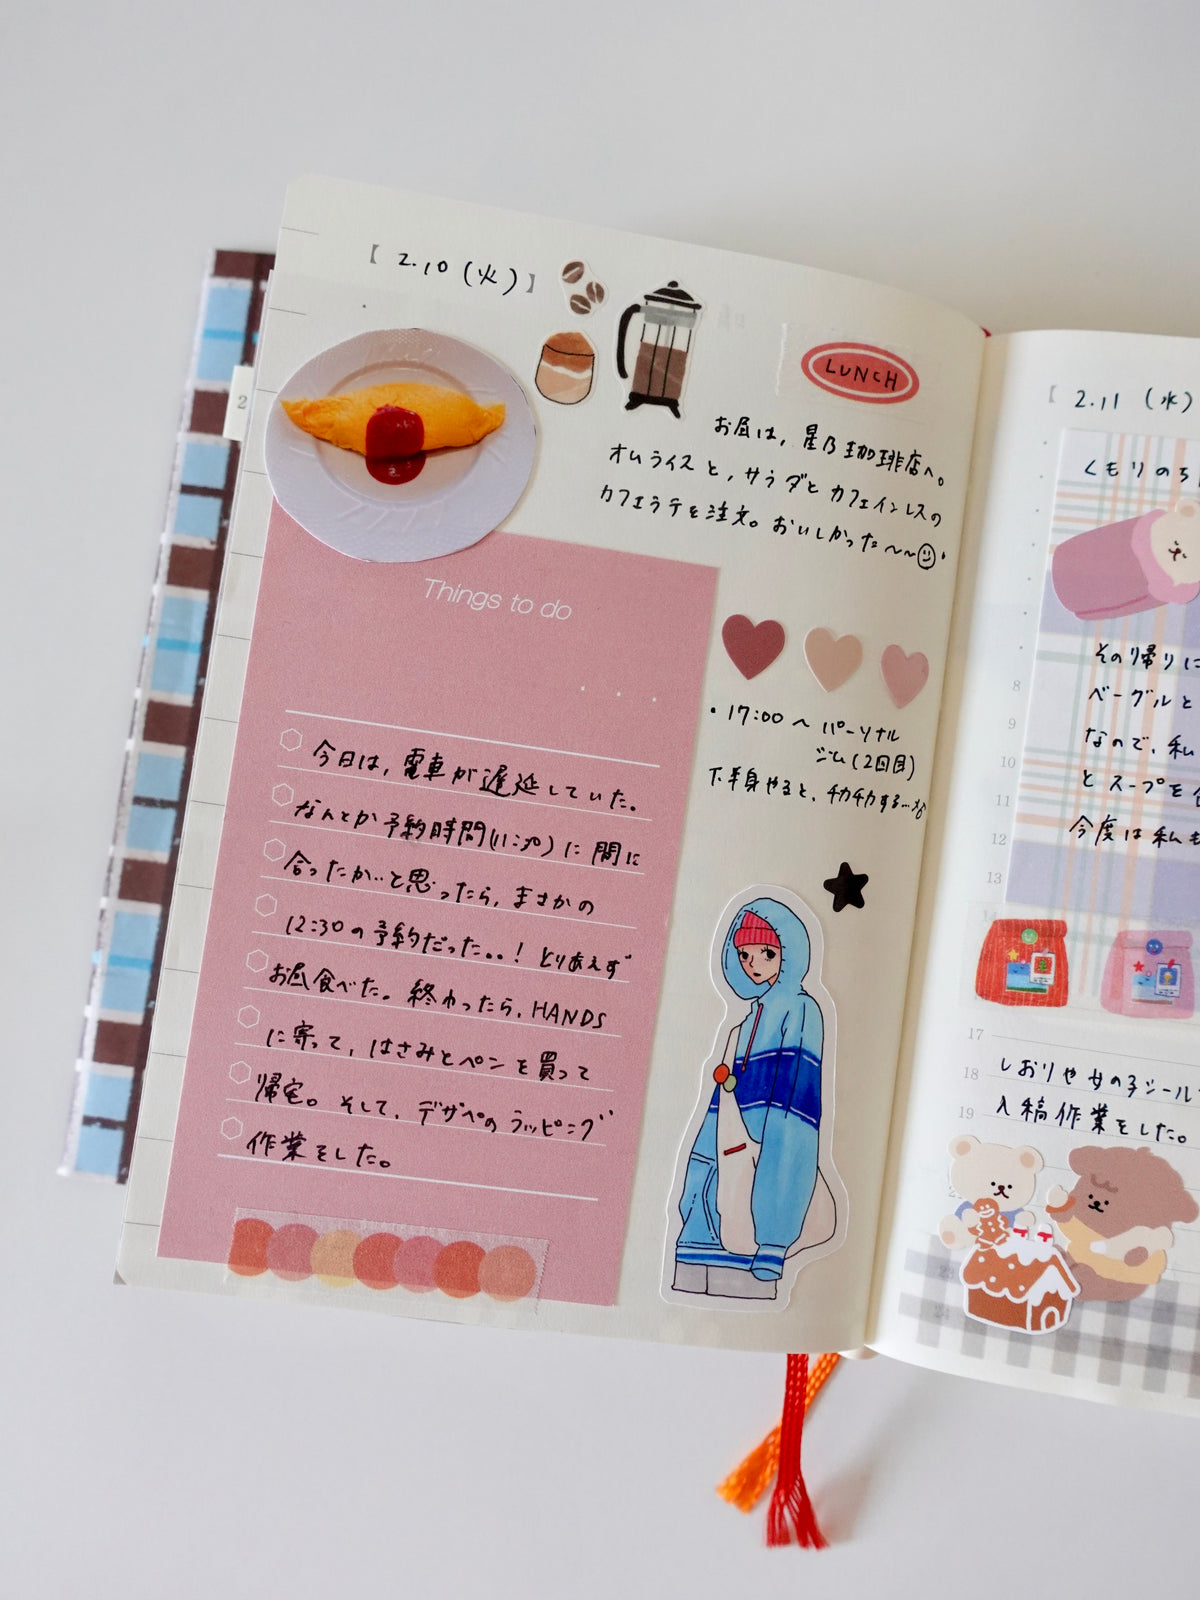 【 2.10 (火) 】
LUNCH
お昼は, 星乃珈琲店へ。
オムライスと, サラダとカフェインレスの
カフェラテを注文。おいしかった〜〜
Things to do
・17:00〜 パーソナル
ジム(2回目)
下半身やると、チカチカする…
今日は, 電車が遅延していた。
なんとか予約時間(11:30)に間に
合ったか…と思ったら, まさかの
12:30の予約だった。。! とりあえず
お昼食べた。終わったら, HANDS
に寄って, はさみとペンを買って
帰宅。そして, デザペのラッピング
作業をした。
2
【 2.11 (水)
くもりのち
その帰りに
ベーグルと
なので, 私
とスープを
今度は私も
8
9
10
11
12
13
17
しおりや女の子シール
18
入稿作業をした。
19
23
24